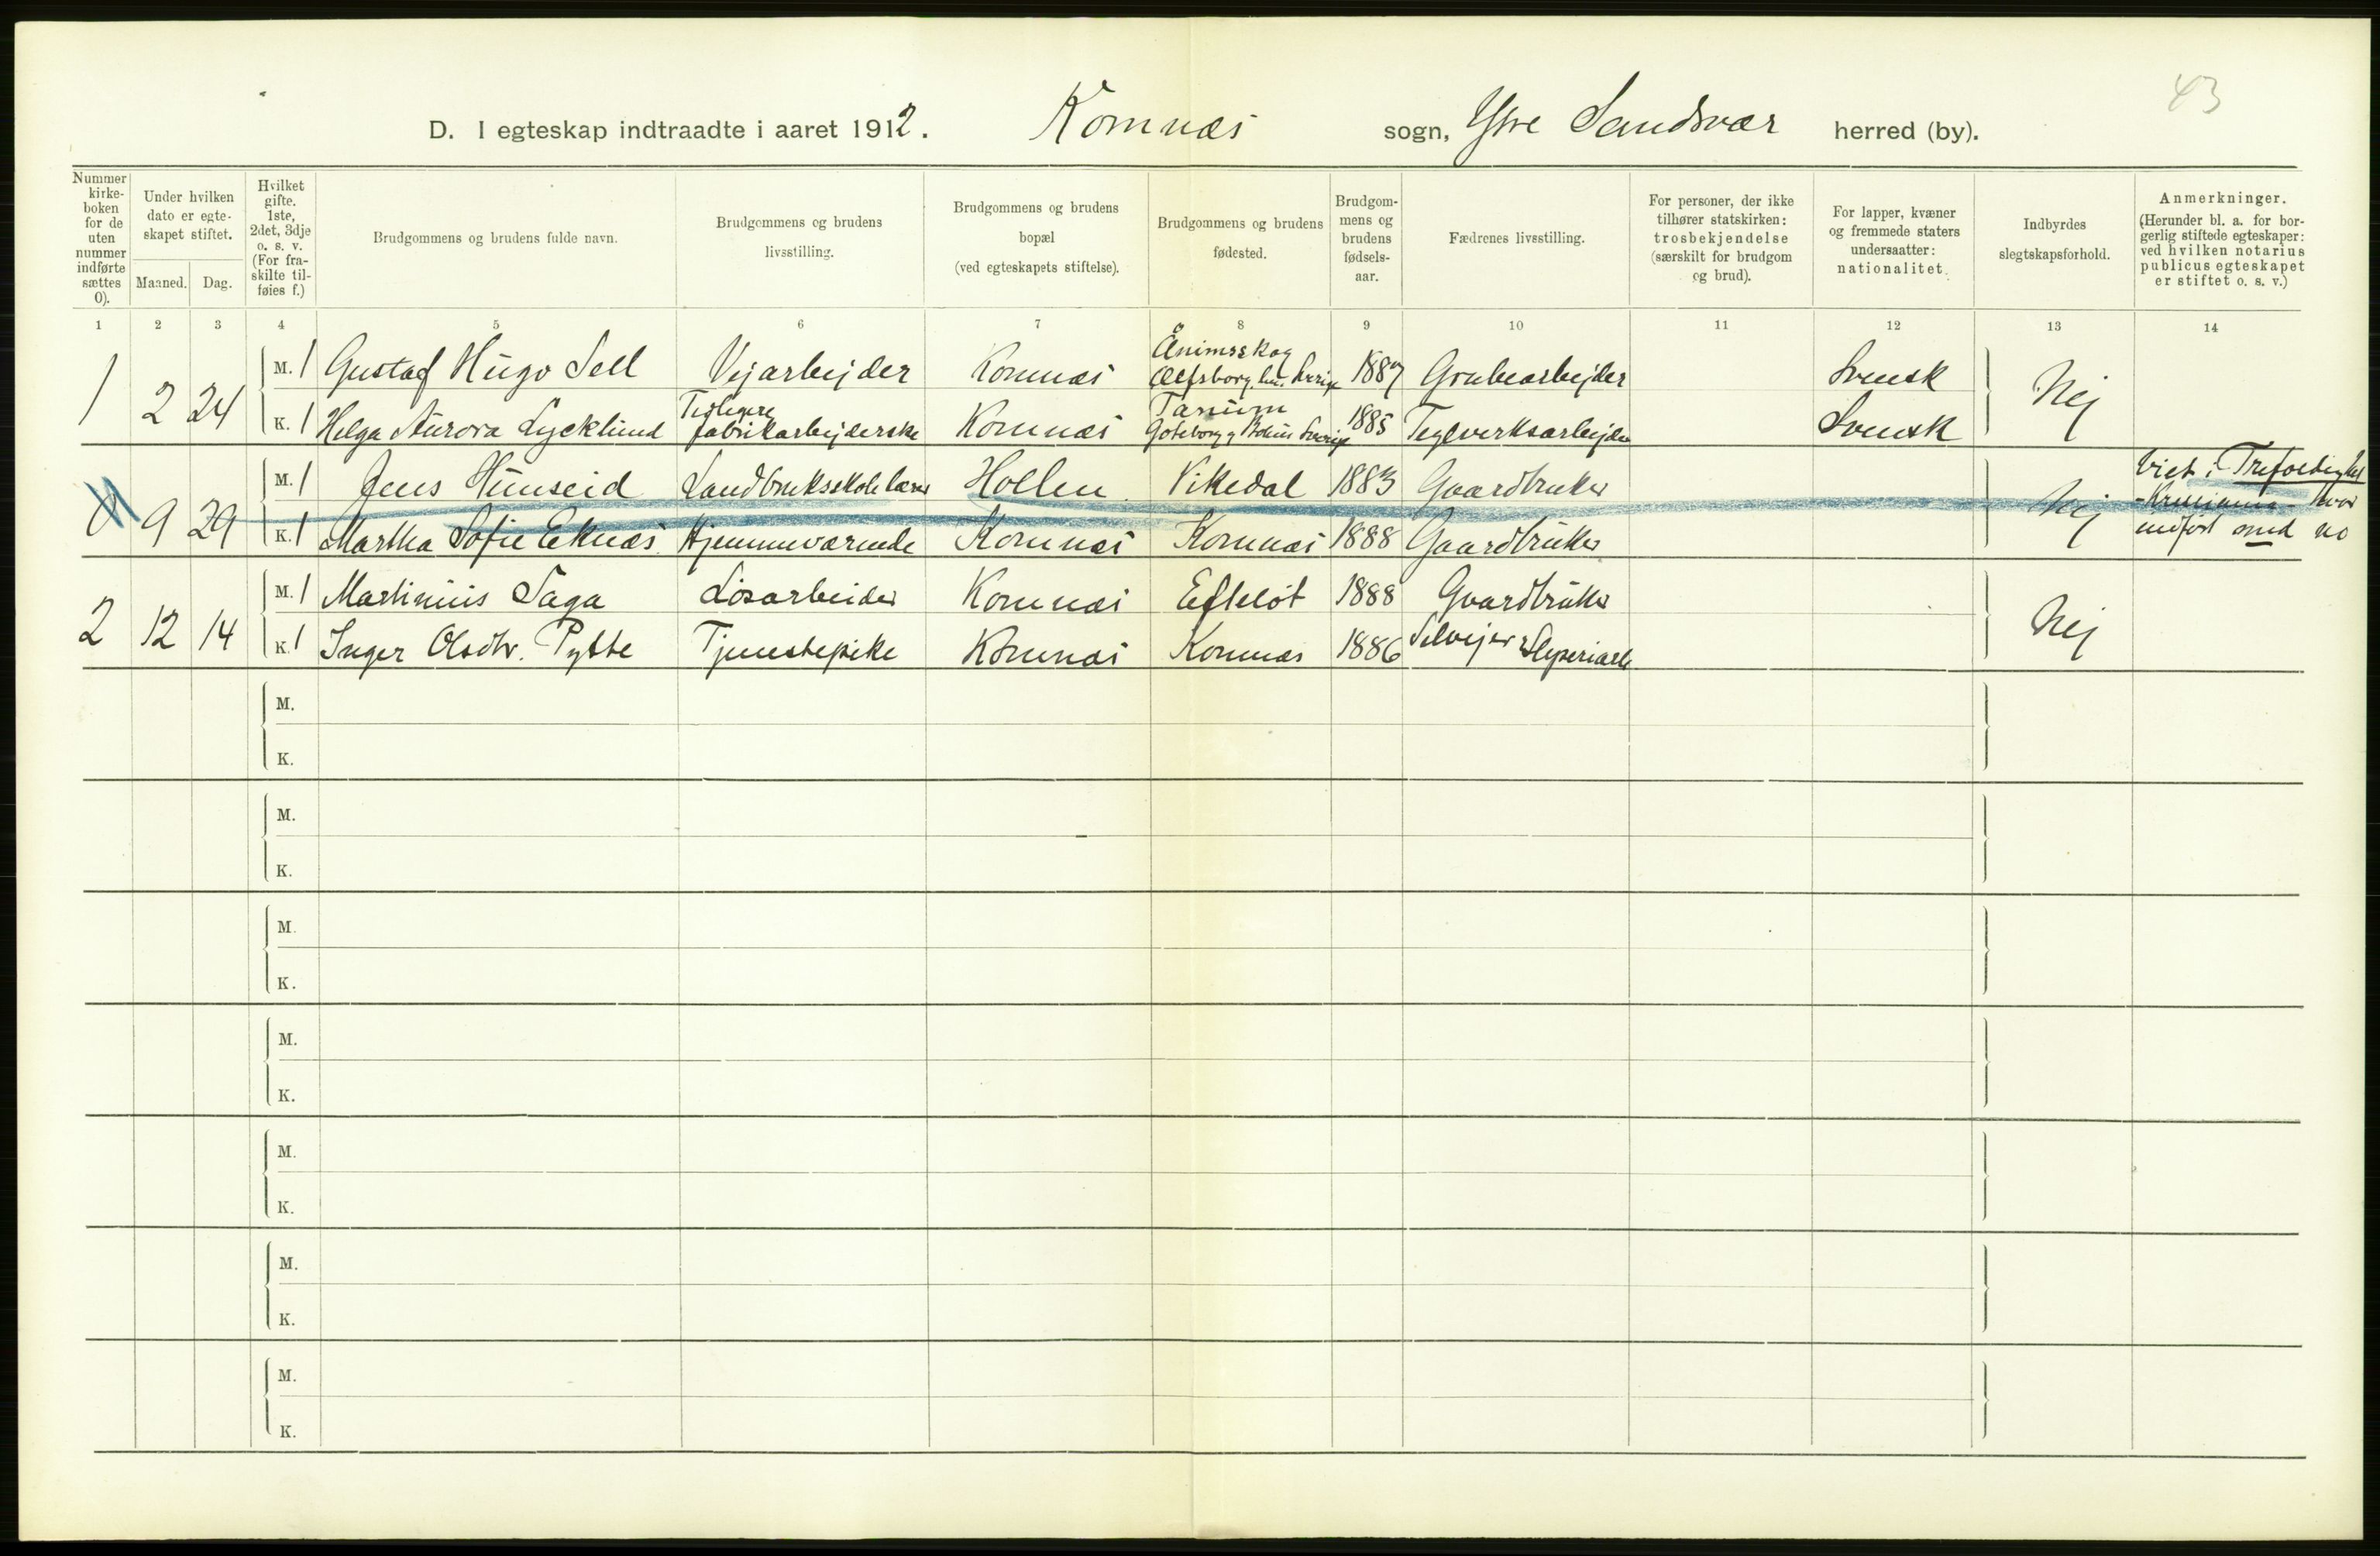 43
D. I egteskap indtraadte i aaret 1912. Komnæs sogn, Ytre Sandsvær herred (by).
Nummer kirke-boken for de uten nummer indførte sættes 0).
Under hvilken dato er egte-skapet stiftet.
Maaned. Dag.
Hvilket gifte. 1ste, 2det, 3dje o. s. v. (For fra-skilte til-føies f.)
Brudgommens og brudens fulde navn.
Brudgommens og brudens livsstilling.
Brudgommens og brudens bopæl (ved egteskapets stiftelse).
Brudgommens og brudens fødested.
Brudgom-mens og brudens fødsels-aar.
Fædrenes livsstilling.
For personer, der ikke tilhører statskirken: trosbekjendelse (særskilt for brudgom og brud).
For lapper, kvæner og fremmede staters undersaatter: nationalitet.
Indbyrdes slegtskapsforhold.
Anmerkninger. (Herunder bl. a. for bor-gerlig stiftede egteskaper: ved hvilken notarius publicus egteskapet er stiftet o. s. v.)
1 2 3 4 5 6 7 8 9 10 11 12 13 14
1 2 24 M. 1 Gustaf Hugo Sell Vejarbejder Komnæs Ånimskog Elfsborg. län. Sverige 1887 Grubearbejder Svensk Nej
K. 1 Helga Aurora Lycklund Tidligere fabrikarbejderske Komnæs Tanum Göteborg y Bohus Sverige 1885 Teglverksarbejder Svensk
0 9 29 M. 1 Jens Hunseid Landbruksskolelærer Hollen Vikedal 1883 Gaardbruker Nej Viet i Trefoldighet
K. 1 Martha Sofie Eknæs Hjemmeværende Komnæs Komnæs 1888 Gaardbruker - Kristiania - hvor indført med no
2 12 14 M. 1 Martinius Saga Løsarbeider Komnæs Efteløt 1888 Gaardbruker Nej
K. 1 Inger Olsdtr. Pytte Tjenestepike Komnæs Komnæs 1886 Selvejer & Sliperiarb
M.
K.
M.
K.
M.
K.
M.
K.
M.
K.
M.
K.
M.
K.